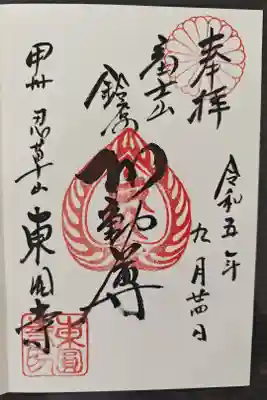 奉拝
令和五年
九月廿四日
富士山
鈴原
不動尊
甲州 忍草山 東圓寺
東圓
寺印